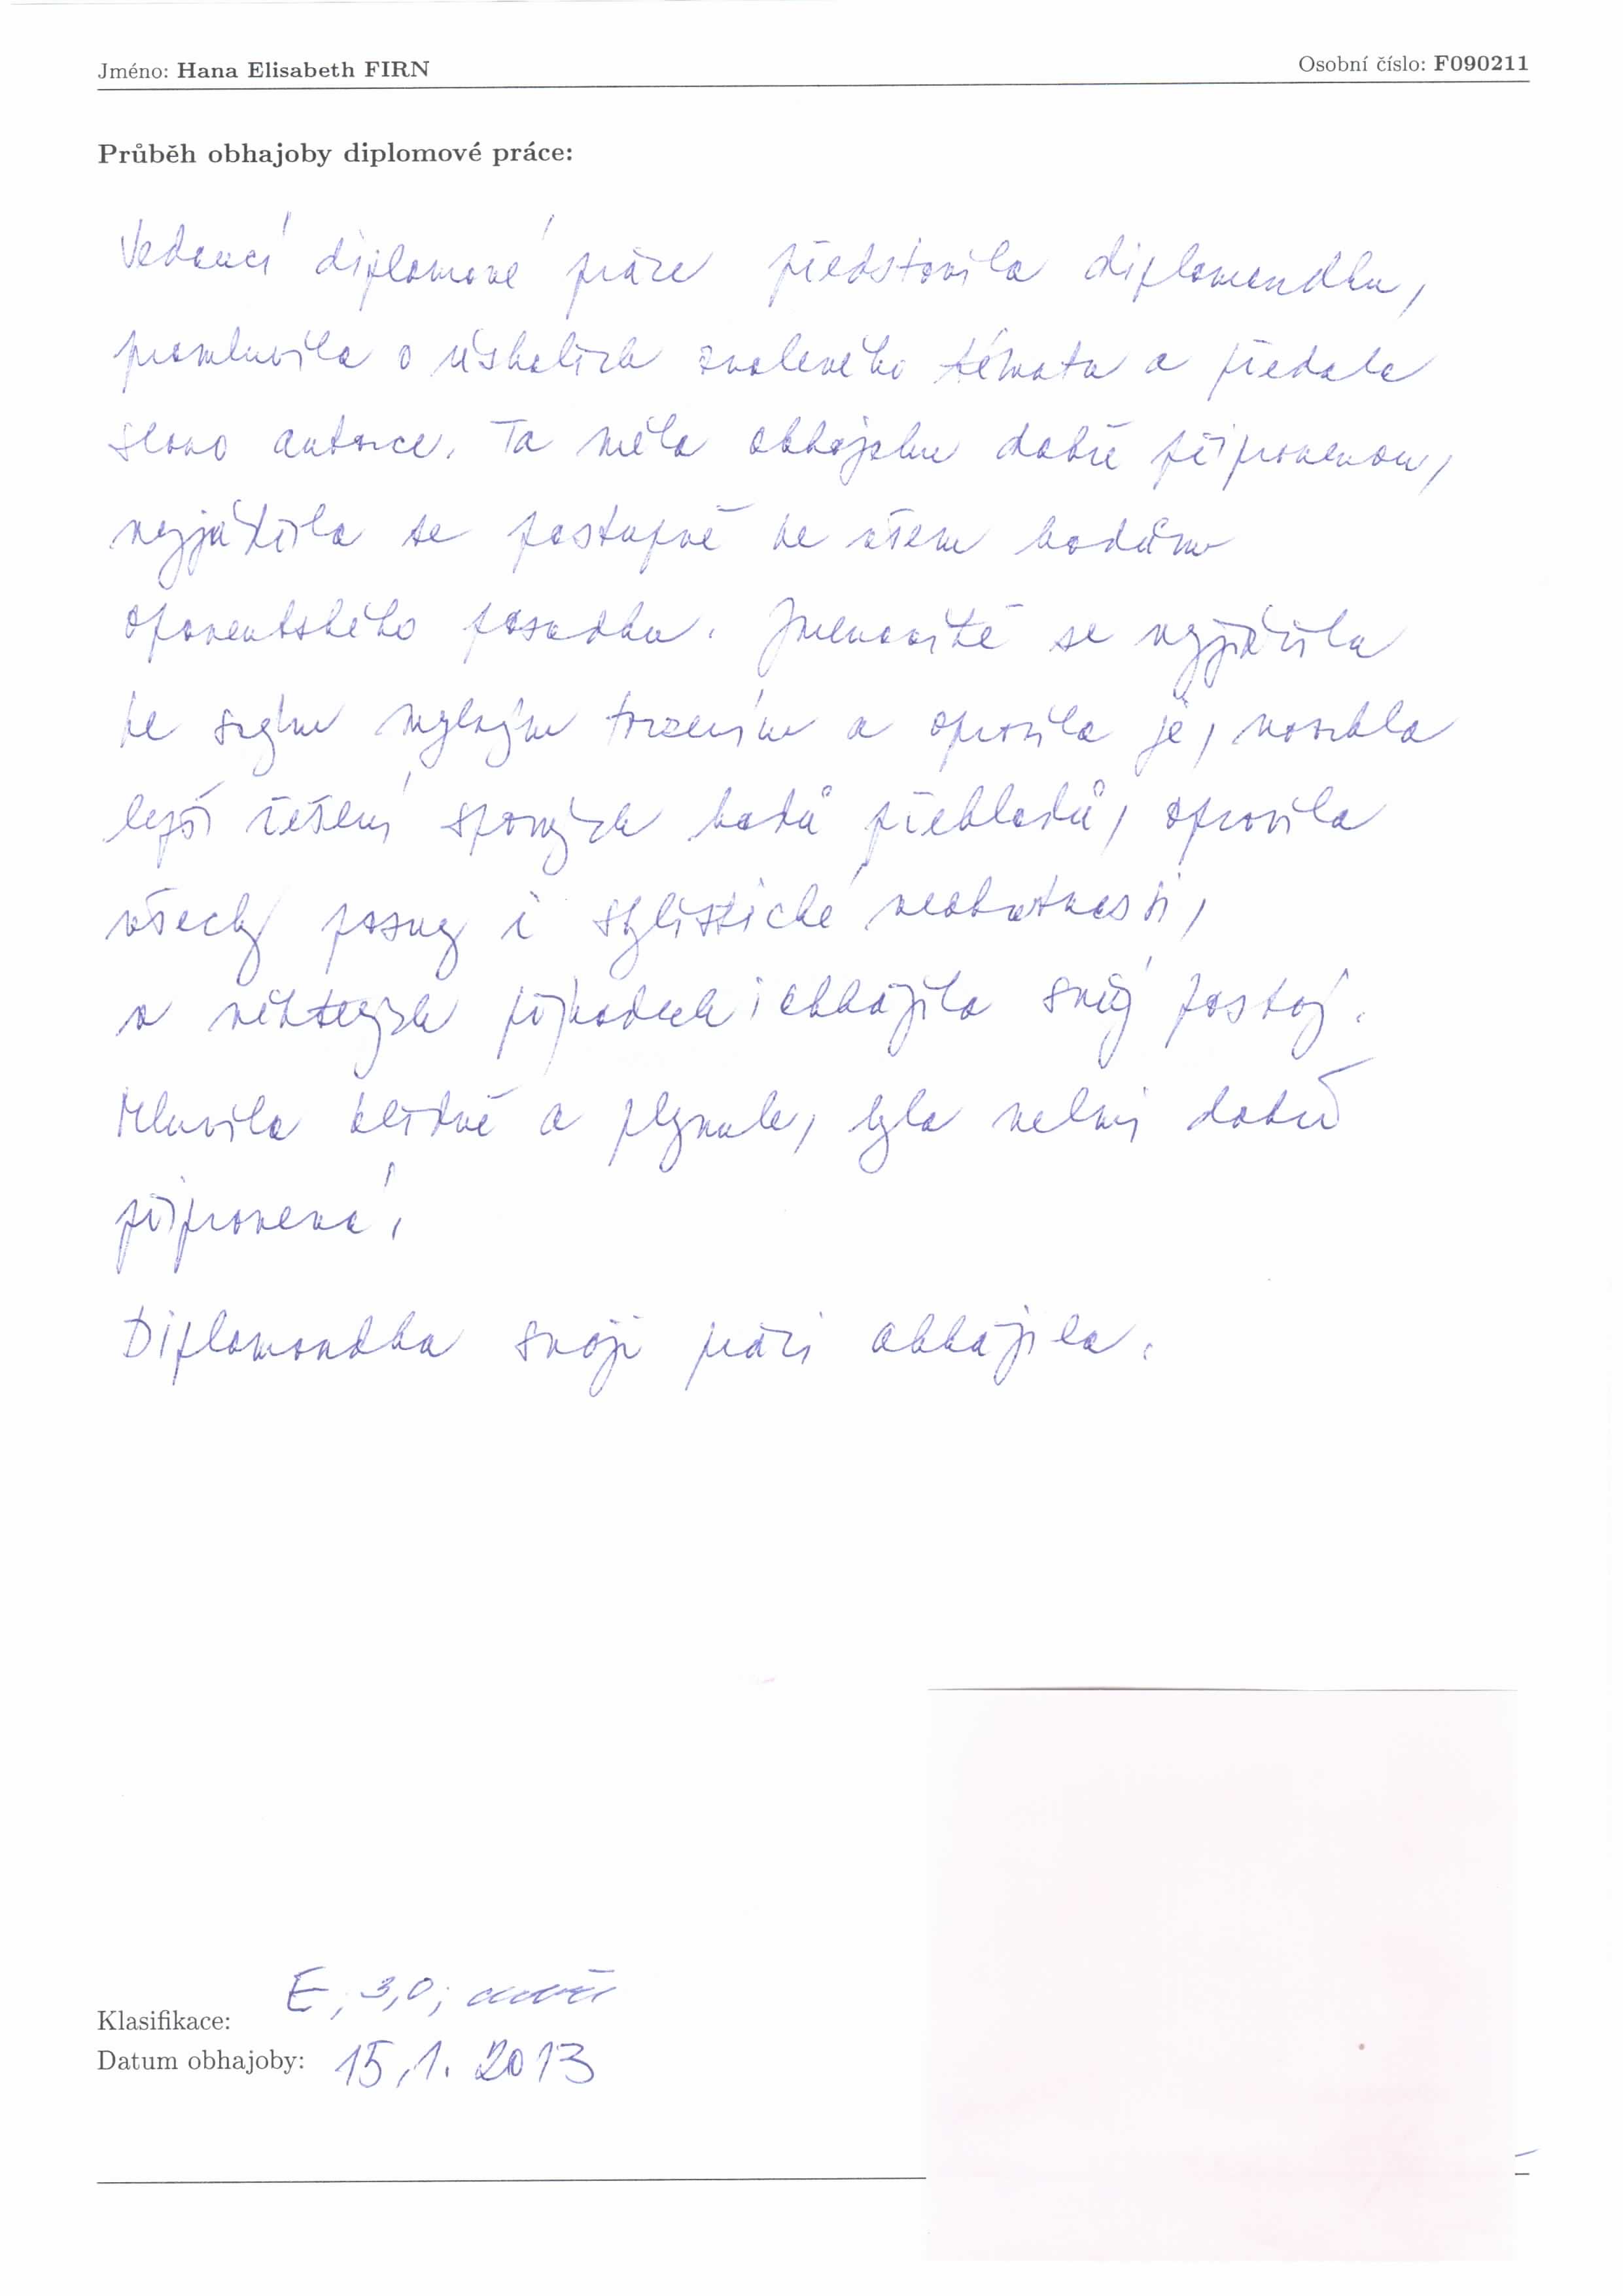 Jméno: Hana Elisabeth FIRN
Osobní číslo: F090211
Průběh obhajoby diplomové práce:
Vedoucí diplomové práce představila diplomandku,
promluvila o úskalích zvoleného tématu a předala
slovo autorce. Ta měla obhajobu dobře připravenou,
vyjádřila se postupně ke všem bodům
oponentského posudku. Jmenovitě se vyjádřila
ke svým mylným tvrzením a opravila je, navrhla
lepší řešení sporných bodů překladů, opravila
všechny posuny i stylistické neobratnosti,
v některých případech i obhájila svůj postoj.
Mluvila klidně a plynule, byla velmi dobře
připravená.
Diplomandka svoji práci obhájila.
Klasifikace: E, 3,0;
Datum obhajoby: 15.1. 2013